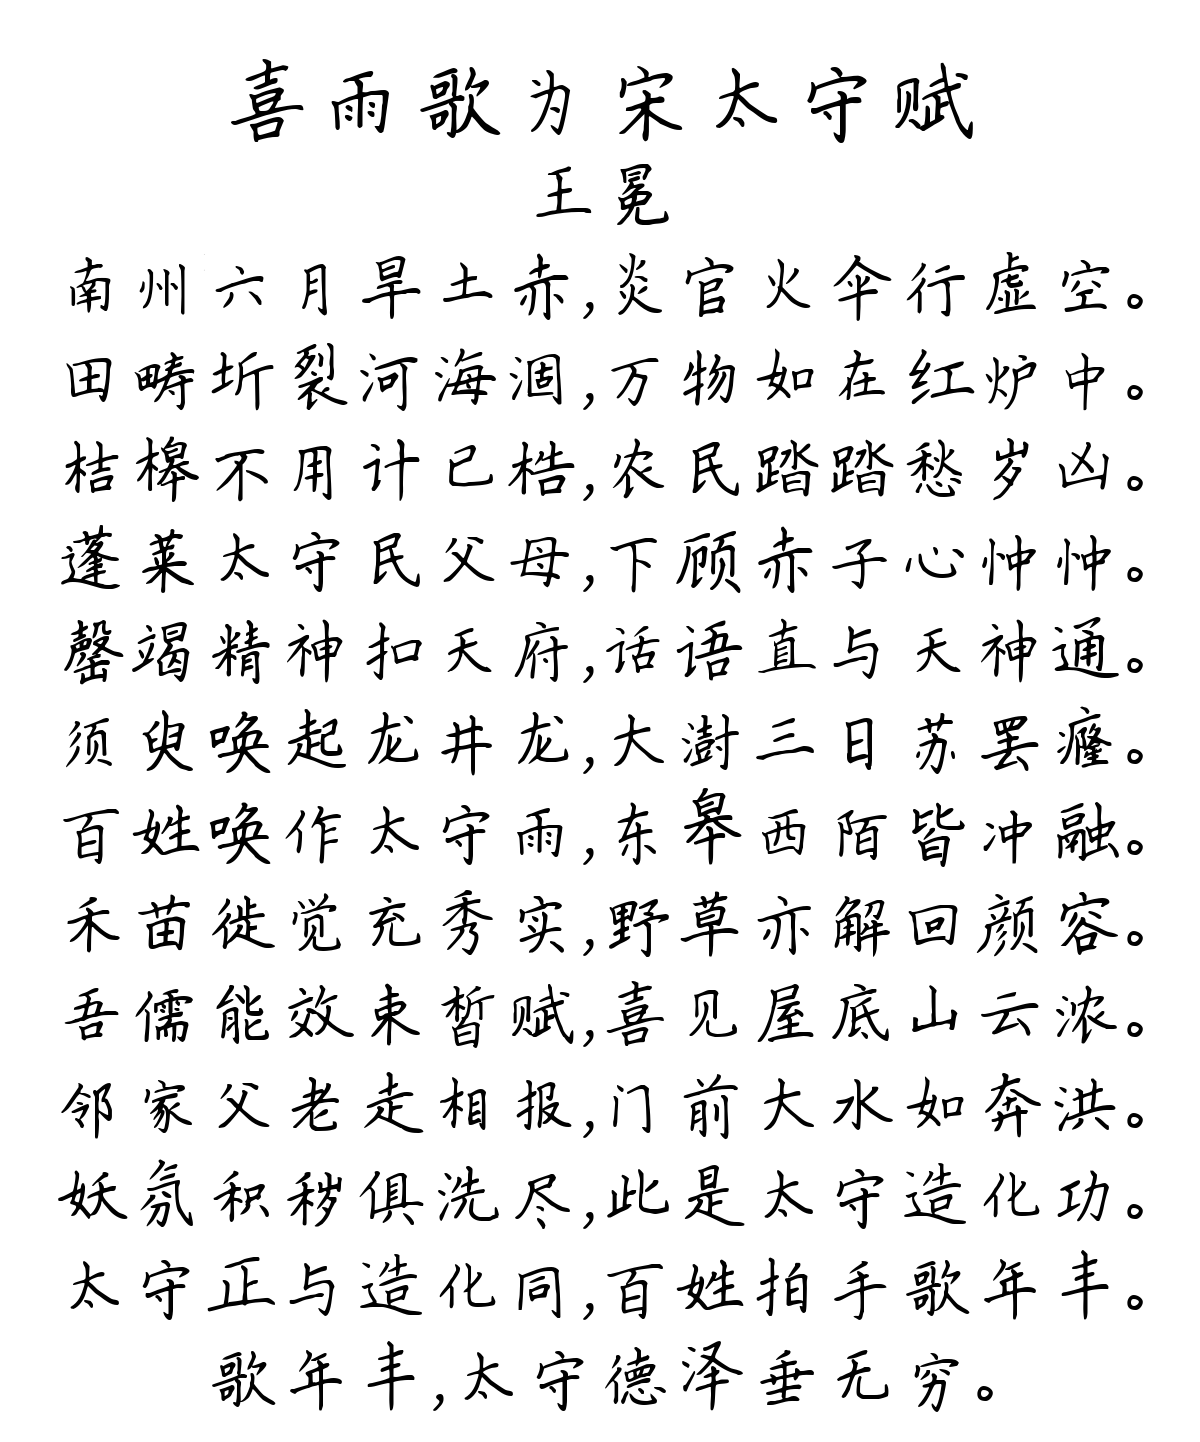 喜雨歌为宋太守赋
王冕
南州六月旱土赤,炎官火伞行虚空。
田畴圻裂河海涸,万物如在红炉中。
桔槔不用计已梏,农民踏踏愁岁凶。
蓬莱太守民父母,下顾赤子心忡忡。
罄竭精神扣天府,话语直与天神通。
须臾唤起龙井龙,大澍三日苏罢癃。
百姓唤作太守雨,东皋西陌皆冲融。
禾苗徙觉充秀实,野草亦解回颜容。
吾儒能效束皙赋,喜见屋底山云浓。
邻家父老走相报,门前大水如奔洪。
妖氛积秽俱洗尽,此是太守造化功。
太守正与造化同,百姓拍手歌年丰。
歌年丰,太守德泽垂无穷。